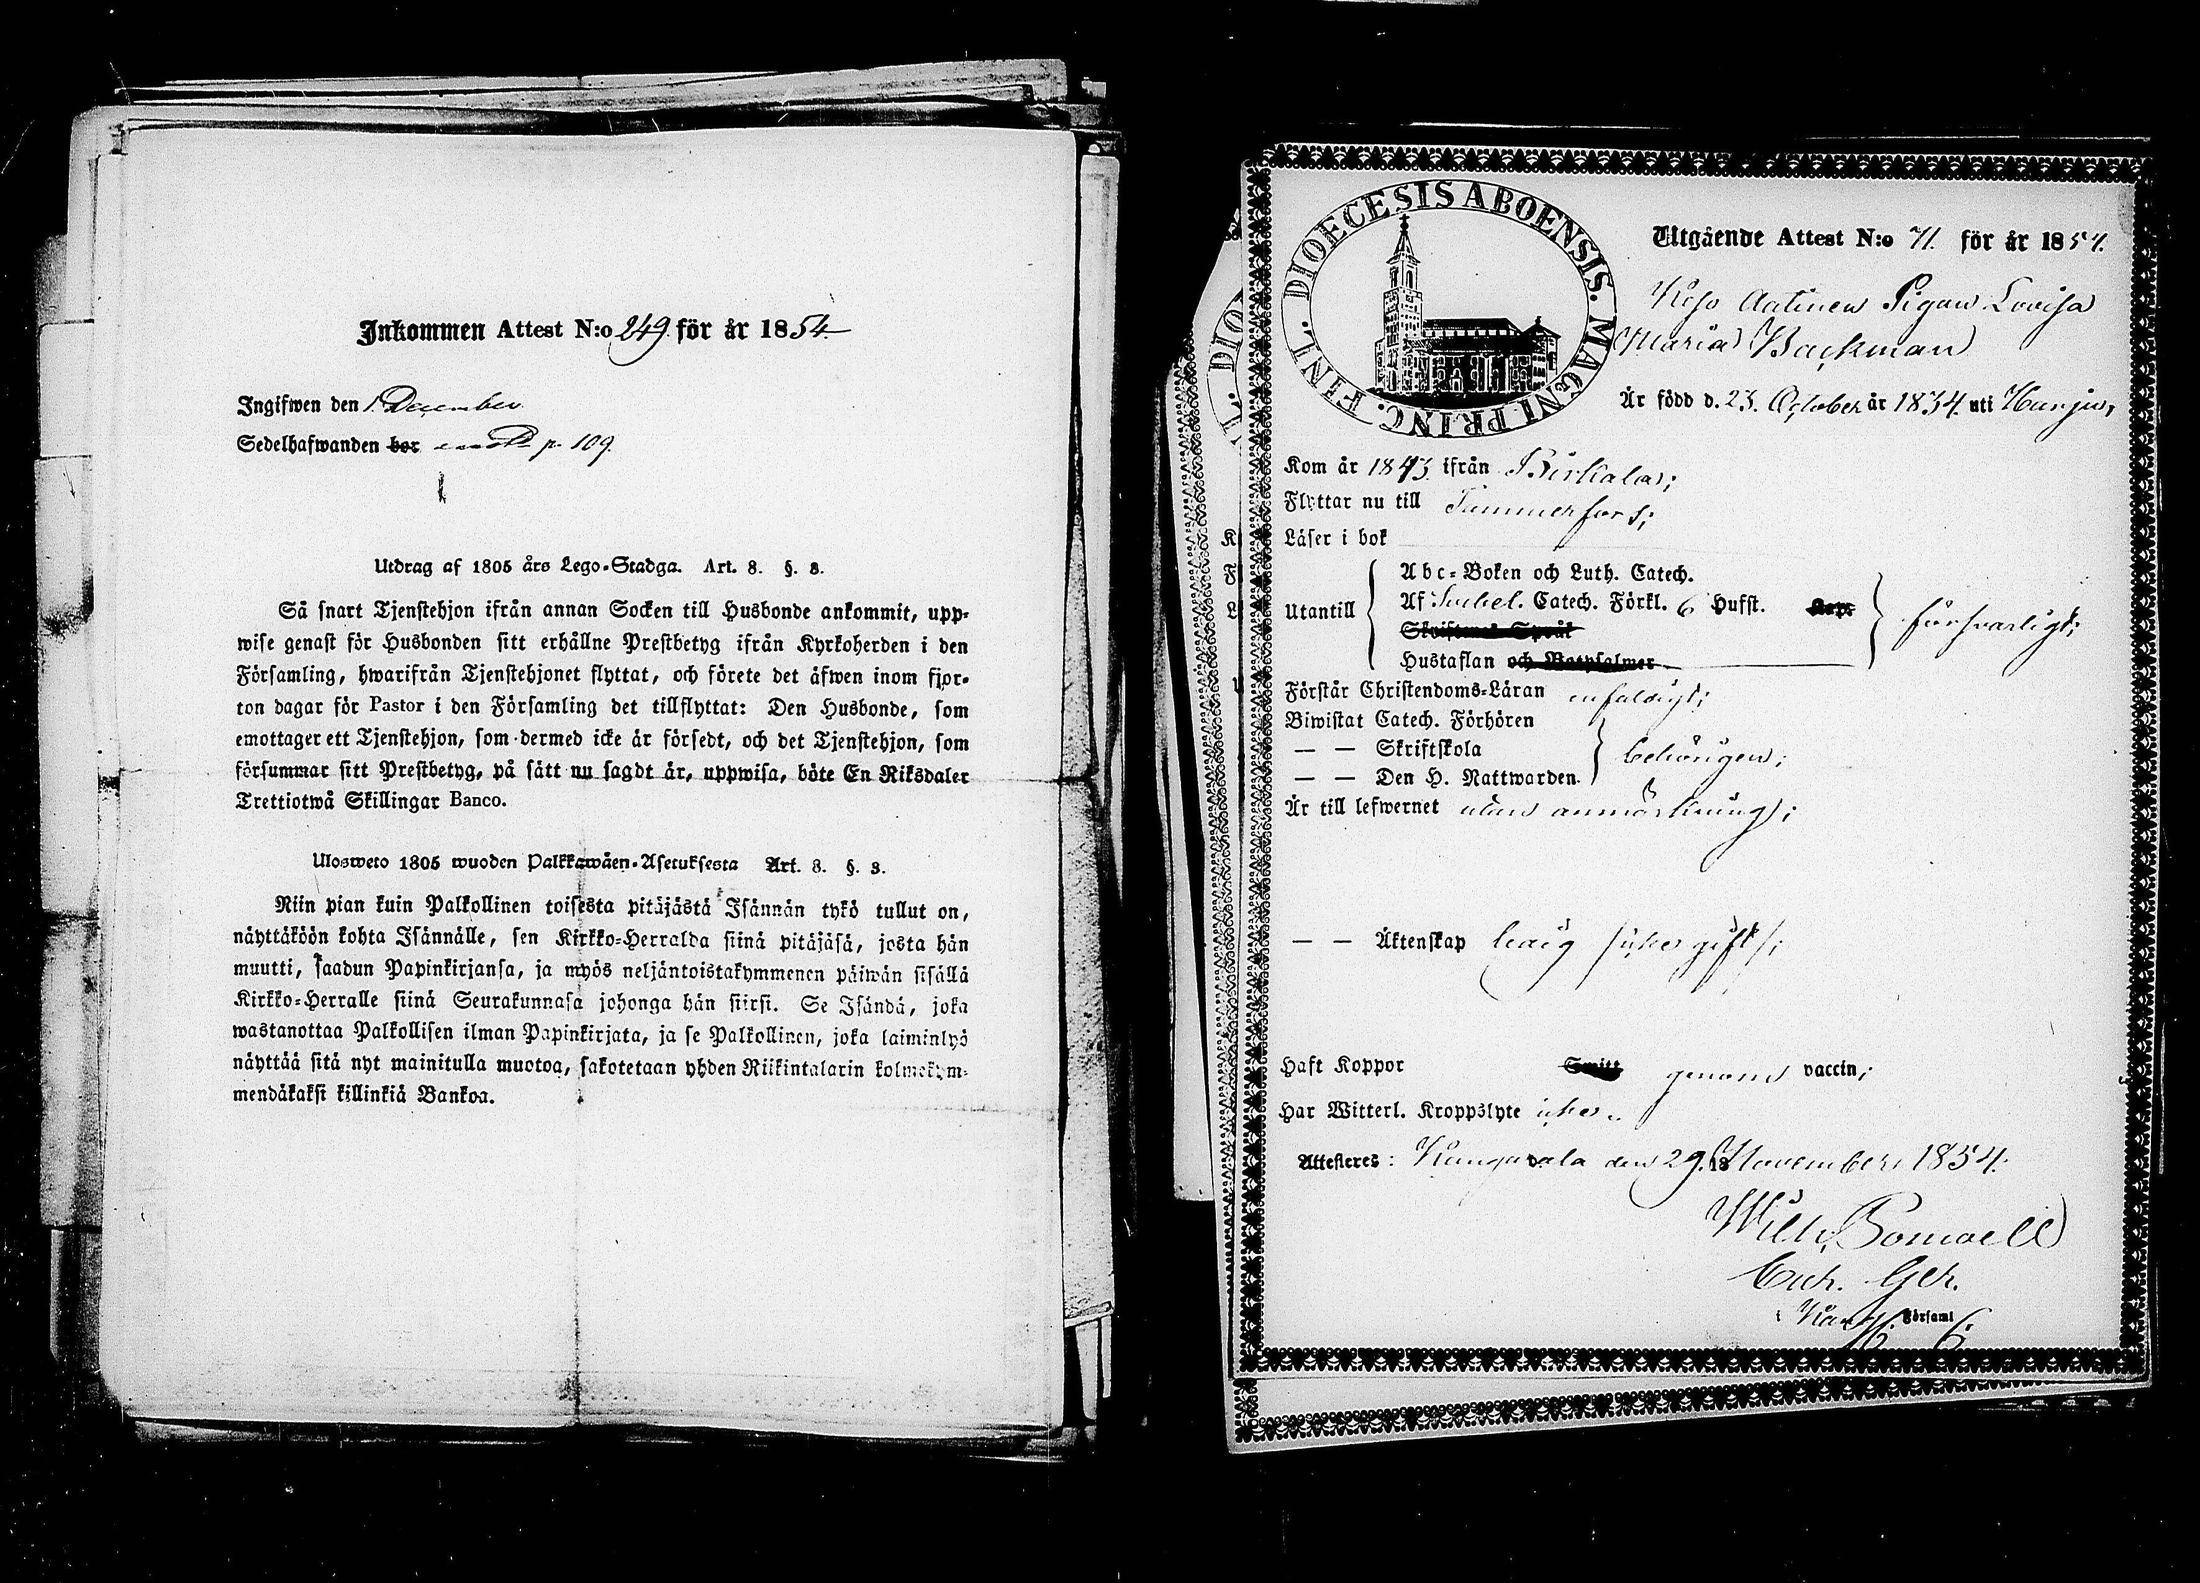 Inkommen Attest N:o 249. för år 1854.
Ingifwen den 1 December
Sedelhafwanden bor p. 109.
Utdrag af 1805 års Lego-Stadga. Art. 8. §. 3.
Så snart Tjenstehjon ifrån annan Socken till Husbonde ankommit, upp-
wise genast för Husbonden sitt erhållne Prestbetyg ifrån Kyrkoherden i den
Församling, hwarifrån Tjenstehjonet flyttat, och förete det äfwen inom fjor-
ton dagar för Pastor i den Församling det tillflyttat: Den Husbonde, som
emottager ett Tjenstehjon, som dermed icke är försedt, och det Tjenstehjon, som
försummar sitt Prestbetyg, på sätt nu sagdt är, uppwisa, böte En Riksdaler
Trettiotwå Skillingar Banco.
Ulosweto 1805 wuoden Palkkawäen-Asetuksesta Art. 8. §. 3.
Niin pian kuin Palkollinen toisesta pitäjästä Isännän tykö tullut on,
näyttäköön kohta Isännälle, sen Kirkko-Herralda siinä pitäjäsä, josta hän
muutti, saadun Papinkirjansa, ja myös neljäntoistakymmenen päiwän sisällä
Kirkko-Herralle siinä Seurakunnasa johonga hän siirsi. Se Isändä, joka
wastanottaa Palkollisen ilman Papinkirjata, ja se Palkollinen, joka laiminlyö
näyttää sitä nyt mainitulla muotoa, sakotetaan yhden Riikintalarin kolmekym-
mendäkaksi killinkiä Bankoa.
DIOECESIS ABOENSIS. MAGNI PRINC. FINL.
Utgående Attest N:o 71. för år 1854.
Pigan Lovisa
Maria Backman
Är född d. 23. October år 1834. uti
Kom år 1843. ifrån Birkala;
Flyttar nu till Tammerfors;
Läser i bok
Utantill
Abc-Boken och Luth. Catech.
Af Svebel. Catech. Förkl. 6 Hufst. Kap.
Skriftenes Språk
Hustaflan och Botpsalmer
försvarligt;
Förstår Christendoms-Läran enfaldigt;
Biwistat Catech. Förhören
— — Skriftskola
— — Den H. Nattwarden.
behörigen;
Är till lefwernet utan anmärkning;
— — Äktenskap ledig icke gift;
Haft Koppor genom vaccin;
Har Witterl. Kroppslyte icke.
Attesteres: Kangasala den 29. November 1854.
Wilh.
i Kang. Församl